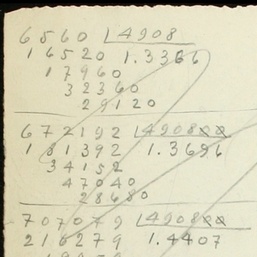 6560 | 4908
16520 1.3366
17960
32360
29120
672192 | 4908xx
181392 1.3696
34152
47040
28680
707079 | 4908xx
216279 1.4407